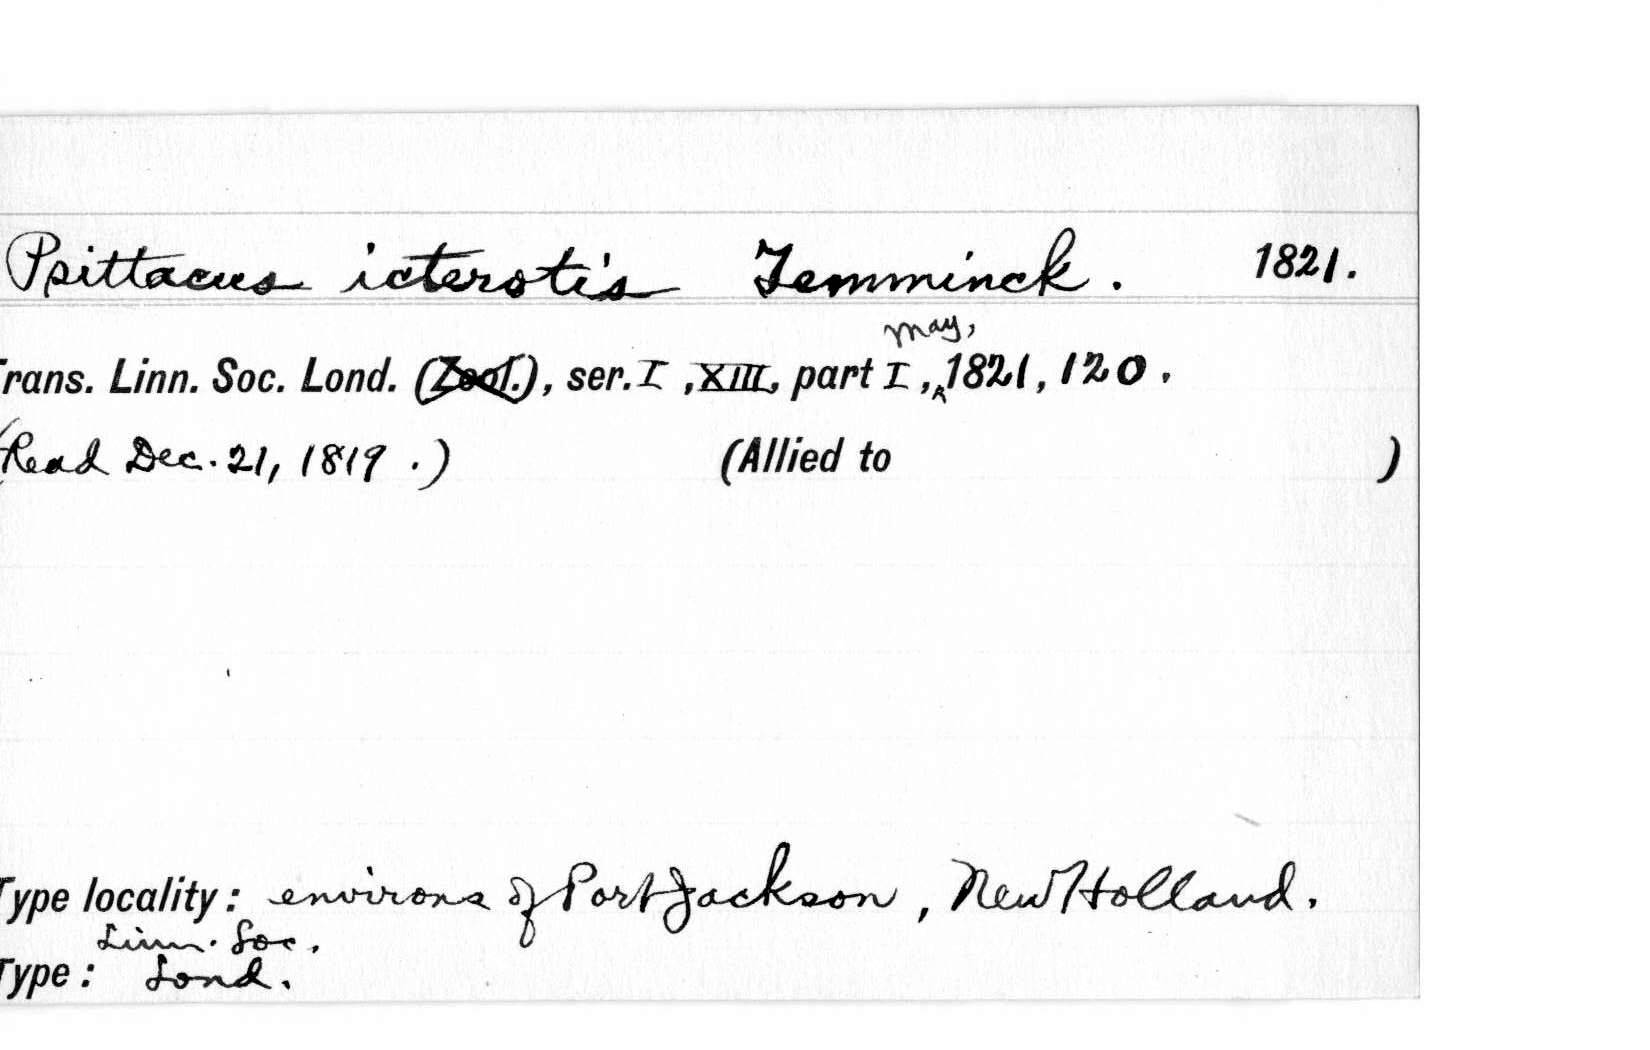 Psittacus icterotis Temminck. 1821.
May,
Trans. Linn. Soc. Lond. (Zool.), ser. I, XIII, part I, ^1821, 120.
(Read Dec. 21, 1819.) (Allied to )
Type locality: environs of Port Jackson, New Holland.
Linn. Soc.
Type: Lond.